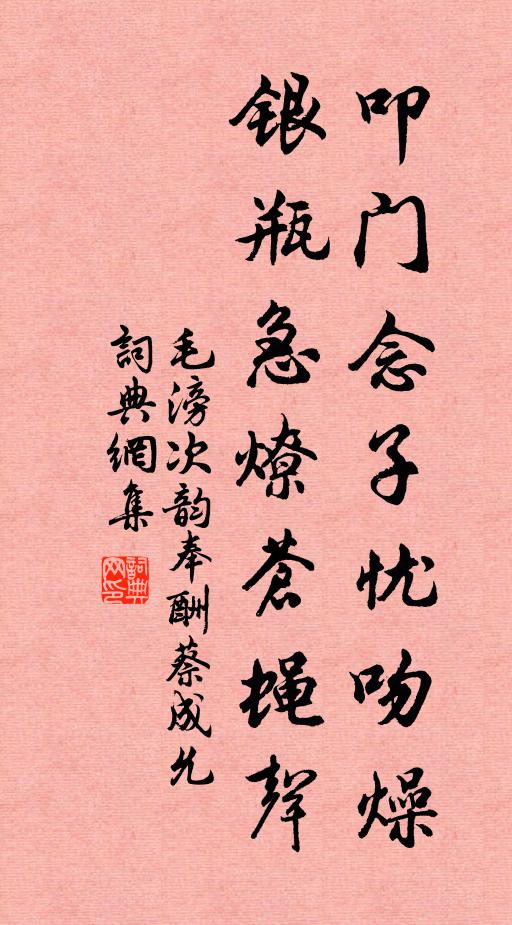 叩门念子忧吻燥
银瓶急燎苍蝇声
毛滂次韵奉酬蔡成允
詞典網集
詞典网印